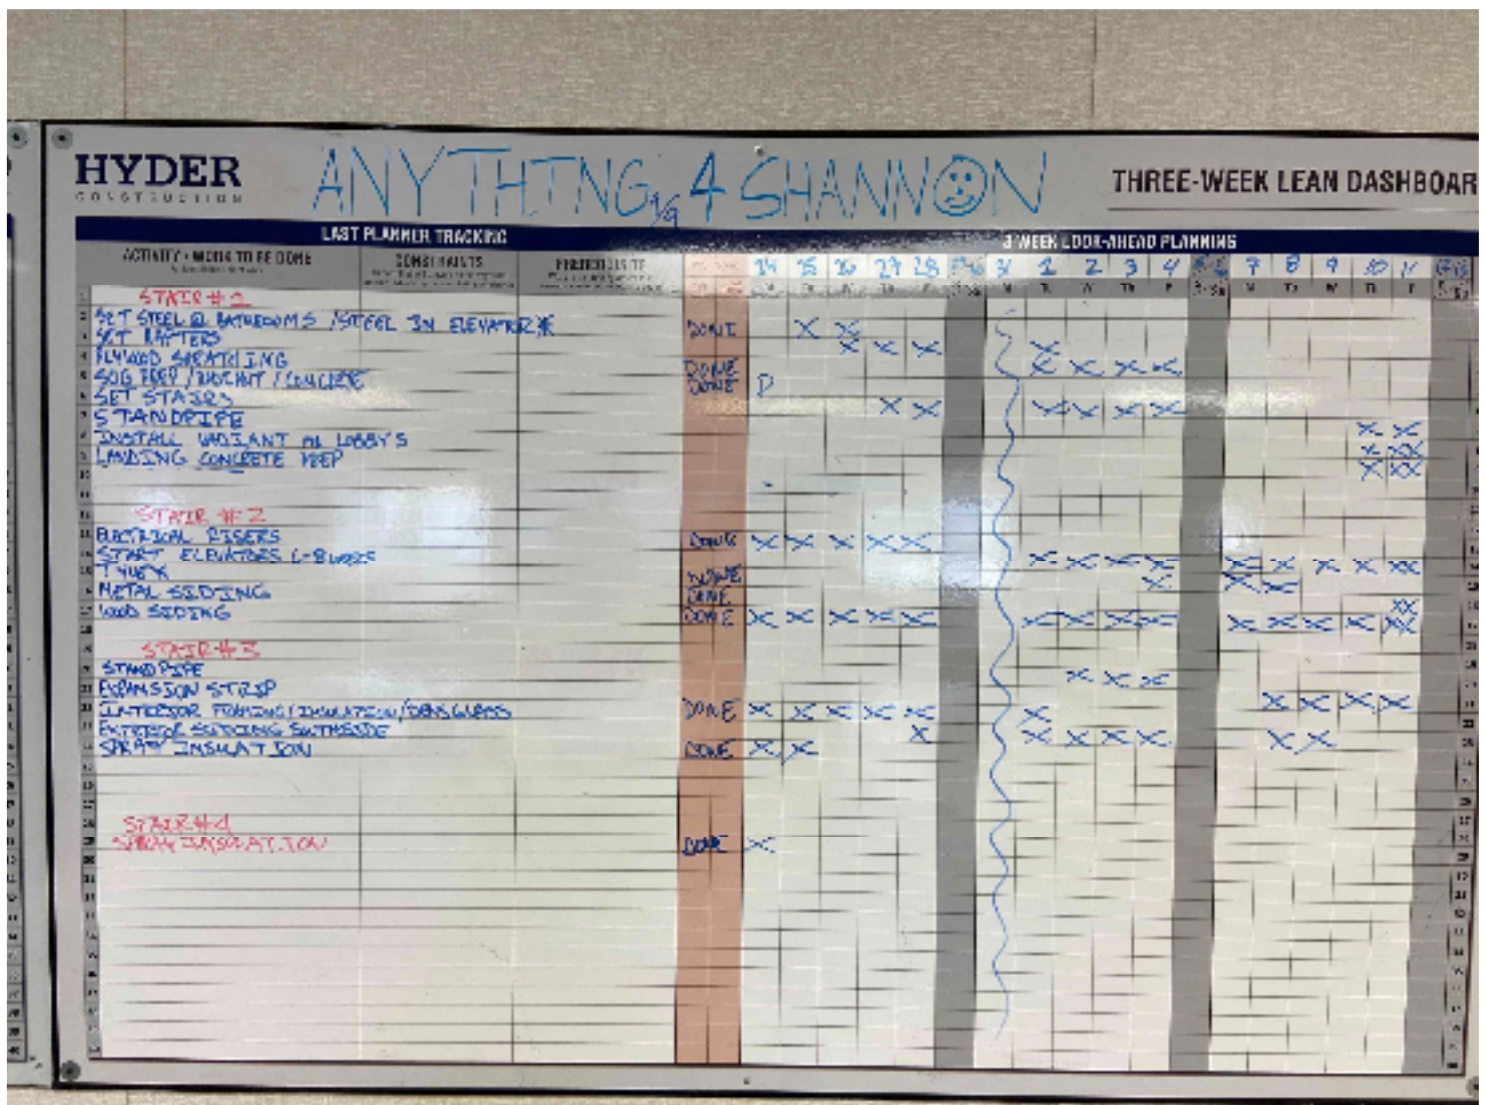 HYDER
CONSTRUCTION
ANYTHING 4 SHANNON
THREE-WEEK LEAN DASHBOAR
LAST PLANNER TRACKING
3 WEEK LOOK-AHEAD PLANNING
ACTIVITY - WORK TO BE DONE
CONSTRAINTS
PREREQUISITE
24 25 26 27 28 31 1 2 3 4 5-6 7 8 9 10 11
STAIR #1
SET STEEL @ BATHROOMS / STEEL IN ELEVATOR DONE X X
SET RAFTERS X X X X
PLYWOOD SHEATHING DONE X X X X
SOG PREP / RADIANT / CONCRETE DONE P
SET STAIRS X X X X X X
STANDPIPE X X
INSTALL RADIANT @ LOBBY'S X XX
LANDING CONCRETE PREP X XX
STAIR #2
ELECTRICAL RISERS DONE X X X X X
START ELEVATORS 6-8 WEEKS X X X X X X X X XX
TYVEK DONE X X X
METAL SIDING DONE XX
WOOD SIDING DONE X X X X X X X X X X X X X XX
STAIR #3
STANDPIPE X X X
EXPANSION STRIP X X X X
INTERIOR FRAMING / INSULATION / DENSGLASS DONE X X X X X X
EXTERIOR SIDING SOUTHSIDE X X X X X X X
SPRAY INSULATION DONE X X
STAIR #4
SPRAY INSULATION DONE X